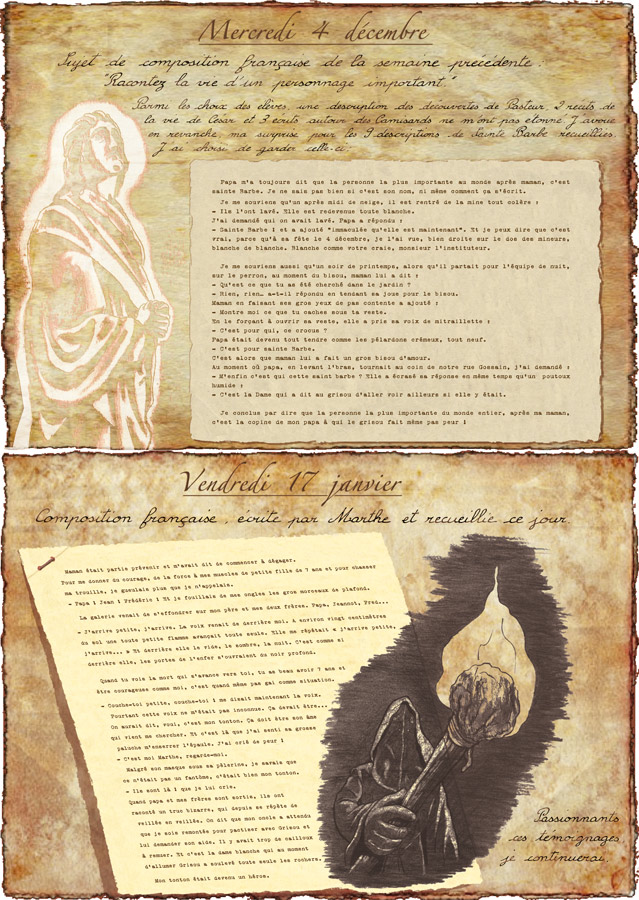 Mercredi 4 décembre
Sujet de composition française de la semaine précédente :
"Racontez la vie d'un personnage important."
Parmi les choix des élèves, une description des découvertes de Pasteur, 2 récits de
la vie de César et 3 écrits autour des Camisards ne m'ont pas étonné. J'avoue
en revanche, ma surprise pour les 9 descriptions de Sainte Barbe recueillies.
J'ai choisi de garder celle-ci.
Papa m'a toujours dit que la personne la plus importante au monde après maman, c'est
sainte Barbe. Je ne sais pas bien si c'est son nom, ni même comment ça s'écrit.
Je me souviens qu'un après midi de neige, il est rentré de la mine tout colère :
- Ils l'ont lavé. Elle est redevenue toute blanche.
J'ai demandé qui on avait lavé. Papa a répondu :
- Sainte Barbe ! et a ajouté "Ils l'ont lavé
vrai, parce qu'à sa fête le 4 décembre, je l'ai vue, bien droite sur le dos des mineurs,
blanche de blanche. Blanche comme votre craie, monsieur l'instituteur.
Je me souviens aussi qu'un soir de printemps, alors qu'il partait pour l'équipe de nuit,
sur le perron, au moment du bisou, maman lui a dit :
- Qu'est-ce que tu as été cherché dans le jardin ?
- Rien, rien… a-t-il répondu en tendant sa joue pour le bisou.
Maman en faisant ses gros yeux de pas contente a ajouté :
- Montre moi ce que tu caches sous ta veste.
En le forçant à ouvrir sa veste, elle a pris sa voix de mitraillette :
- C'est pour qui, ce crocus ?
Papa était devenu tout tendre comme les pélardons crémeux, tout neuf.
- C'est pour sainte Barbe.
C'est alors que maman lui a fait un gros bisou d'amour.
Au moment où papa, en levant l'bras, tournait au coin de notre rue Gossain, j'ai demandé :
- M'enfin c'est qui cette saint barbe ? Elle a écrasé sa réponse en même temps qu'un poutoux
humide :
- C'est la Dame qui a dit au grisou d'aller voir ailleurs si elle y était.
Je conclus par dire que la personne la plus importante du monde entier, après ma maman,
c'est la copine de mon papa à qui le grisou fait même pas peur !
Vendredi 17 janvier
Composition française, écrite par Marthe et recueillie ce jour.
Maman était partie prévenir et m'avait dit de commencer à dégager.
Pour me donner du courage, de la force à mes muscles de petite fille de 7 ans et pour chasser
ma trouille, je gueulais plus que je n'appelais.
- Papa ! Jean ! Frédéric ! Et je fouillais de mes ongles les gros morceaux de plafond.
La galerie venait de s'effondrer sur mon père et mes deux frères. Papa, Jeannot, Fred...
- J'arrive petite, j'arrive. La voix venait de derrière moi. A environ vingt centimètres
du sol une toute petite flamme avançait toute seule. Elle me répétait « j'arrive petite,
j'arrive... » Et derrière elle le vide, le sombre, la nuit. C'est comme si
derrière elle, les portes de l'enfer s'ouvraient du noir profond.
Quand tu vois la mort qui s'avance vers toi, tu as beau avoir 7 ans et
être courageuse comme moi, c'est quand même pas gai comme situation.
- Couche-toi petite, couche-toi ! me disait maintenant la voix.
Pourtant cette voix ne m'était pas inconnue. Ça devait être...
On aurait dit, voui, c'est mon tonton. Ça doit être son âme
qui vient me chercher. Et c'est là que j'ai senti sa grosse
paluche m'enserrer l'épaule. J'ai crié de peur !
- C'est moi Marthe, regarde-moi.
Malgré son masque sous sa pèlerine, je savais que
ce n'était pas un fantôme, c'était bien mon tonton.
- Ils sont là ! que je lui crie.
Quand papa et mes frères sont sortis, ils ont
raconté un truc bizarre, qui depuis se répète de
veillée en veillée. On dit que mon oncle a attendu
que je sois remontée pour pactiser avec Grisou et
lui demander son aide. Il y avait trop de cailloux
à remuer. Et c'est la dame blanche qui au moment
d'allumer Grisou a soulevé toute seule les rochers.
Mon tonton était devenu un héros.
Passionnants
ces témoignages
je continuerai.